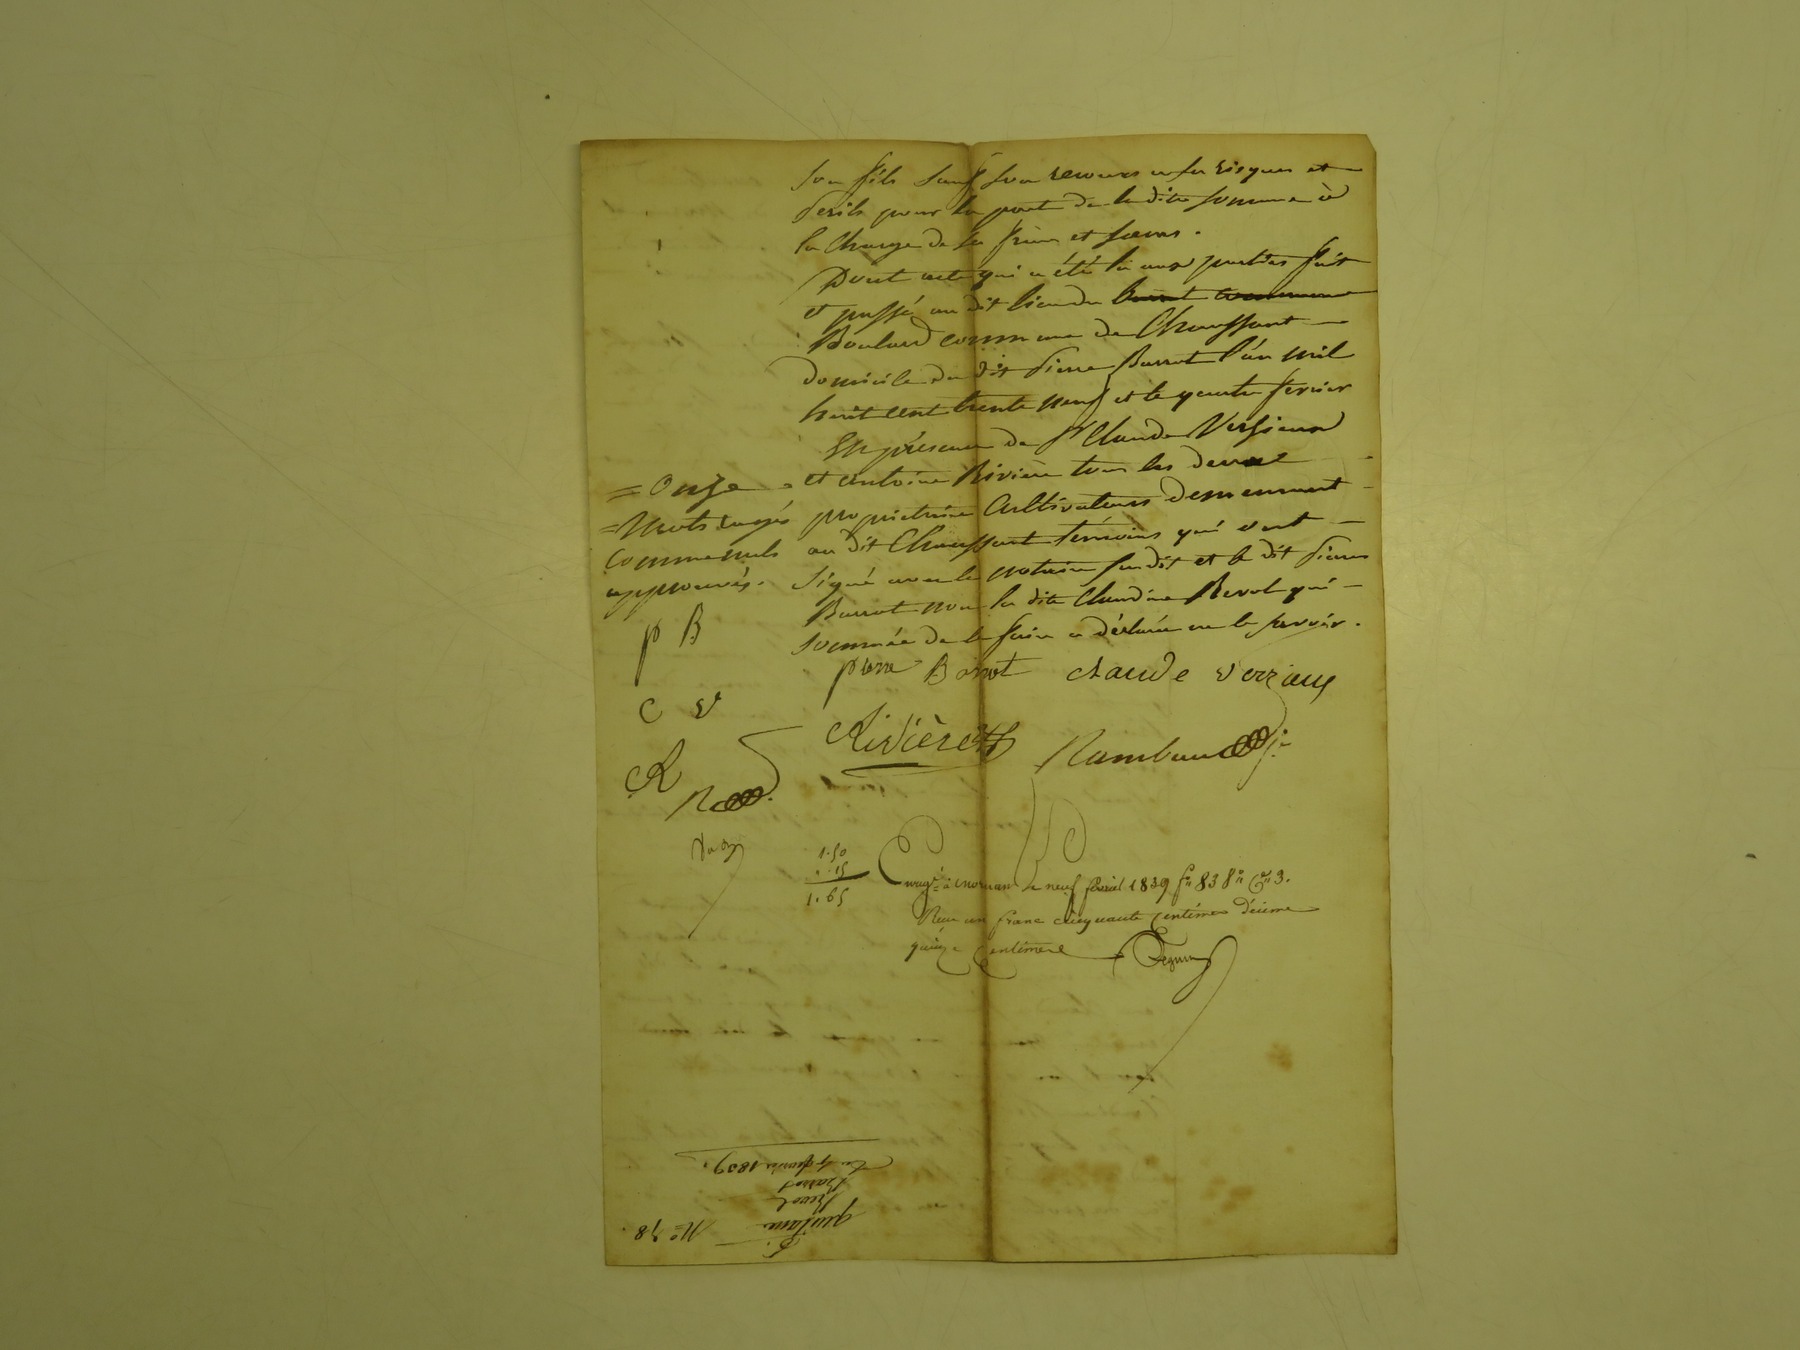 son fils sauf son recours à ses risques et
périls pour la part de la dite somme à
la charge de ses frères et sœurs.
Dont acte qui a été lu aux parties fait
et passé au dit lieu du
Boulard commune de Chaussant
domicile du dit Pierre Barrot l'an mil
huit cent trente neuf et le quatre fevrier
En présence de Sr Claude Verzieux
et antoine Rivière tous les deux
propriétaires Cultivateurs demeurant
au dit Chaussant témoins qui ont
signé avec le notaire susdit et le dit Pierre
Barrot non la dite Claudine Revol qui
sommée de le faire a déclaré ne le savoir.
= Onze
= Mots rayés
comme nuls
approuvés.
p B
C V
R
R
pierre Barrot claude verzieux
Rivière
Rambaud
1.50
.15
1.65
Enregé à Mornant le neuf février 1839 fo 83 Ro Ces 3.
Reçu un franc cinquante Centimes décime
quinze Centimes
No 78.
quittance
Revol
Barrot
Du 4 février 1839.